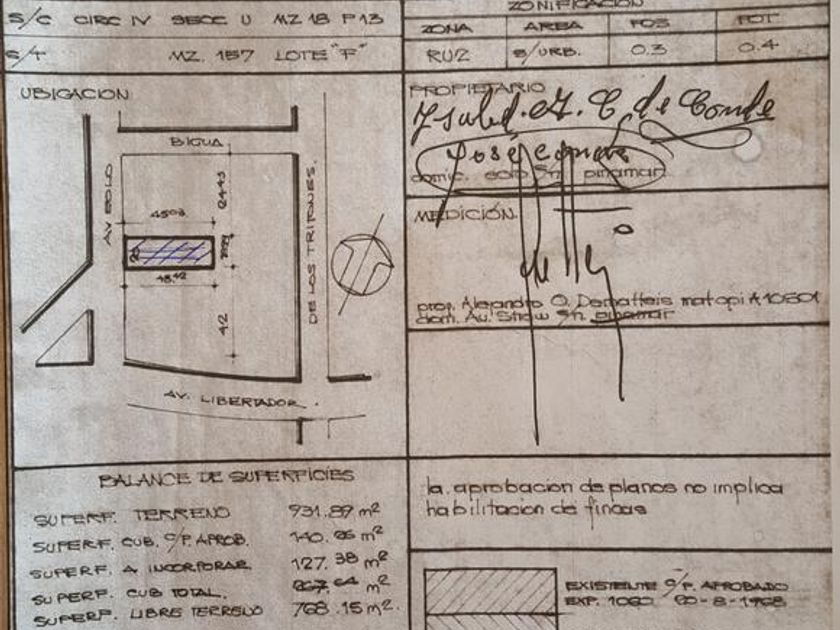 S/C CIRC IV SECC U MZ 18 P 13
S/T MZ. 157 LOTE "F"
ZONIFICACION
ZONA AREA FOS FOT
RU2 S/URB. 0.3 0.4
UBICACION
BIGUA
AV EOLO
DE LOS TRITONES.
42
AV. LIBERTADOR.
PROPIETARIO
Ysabel. de Conde
José Conde
domic. eolo S/n. pinamar
MEDICIÓN
prop. Alejandro O. Dematteis mat api A10601
dom. Av. Shaw S/n. pinamar
BALANCE DE SUPERFICIES
SUPERF. TERRENO 931.89 m2
SUPERF. CUB. C/P. APROB. 140.
SUPERF. A INCORPORAR 127.38 m2
SUPERF. CUB TOTAL. m2
SUPERF. LIBRE TERRENO 768.15 m2.
la aprobacion de planos no implica
habilitacion de fincas
EXISTENTE C/P. APROBADO
EXP. 1060 20-8-1968